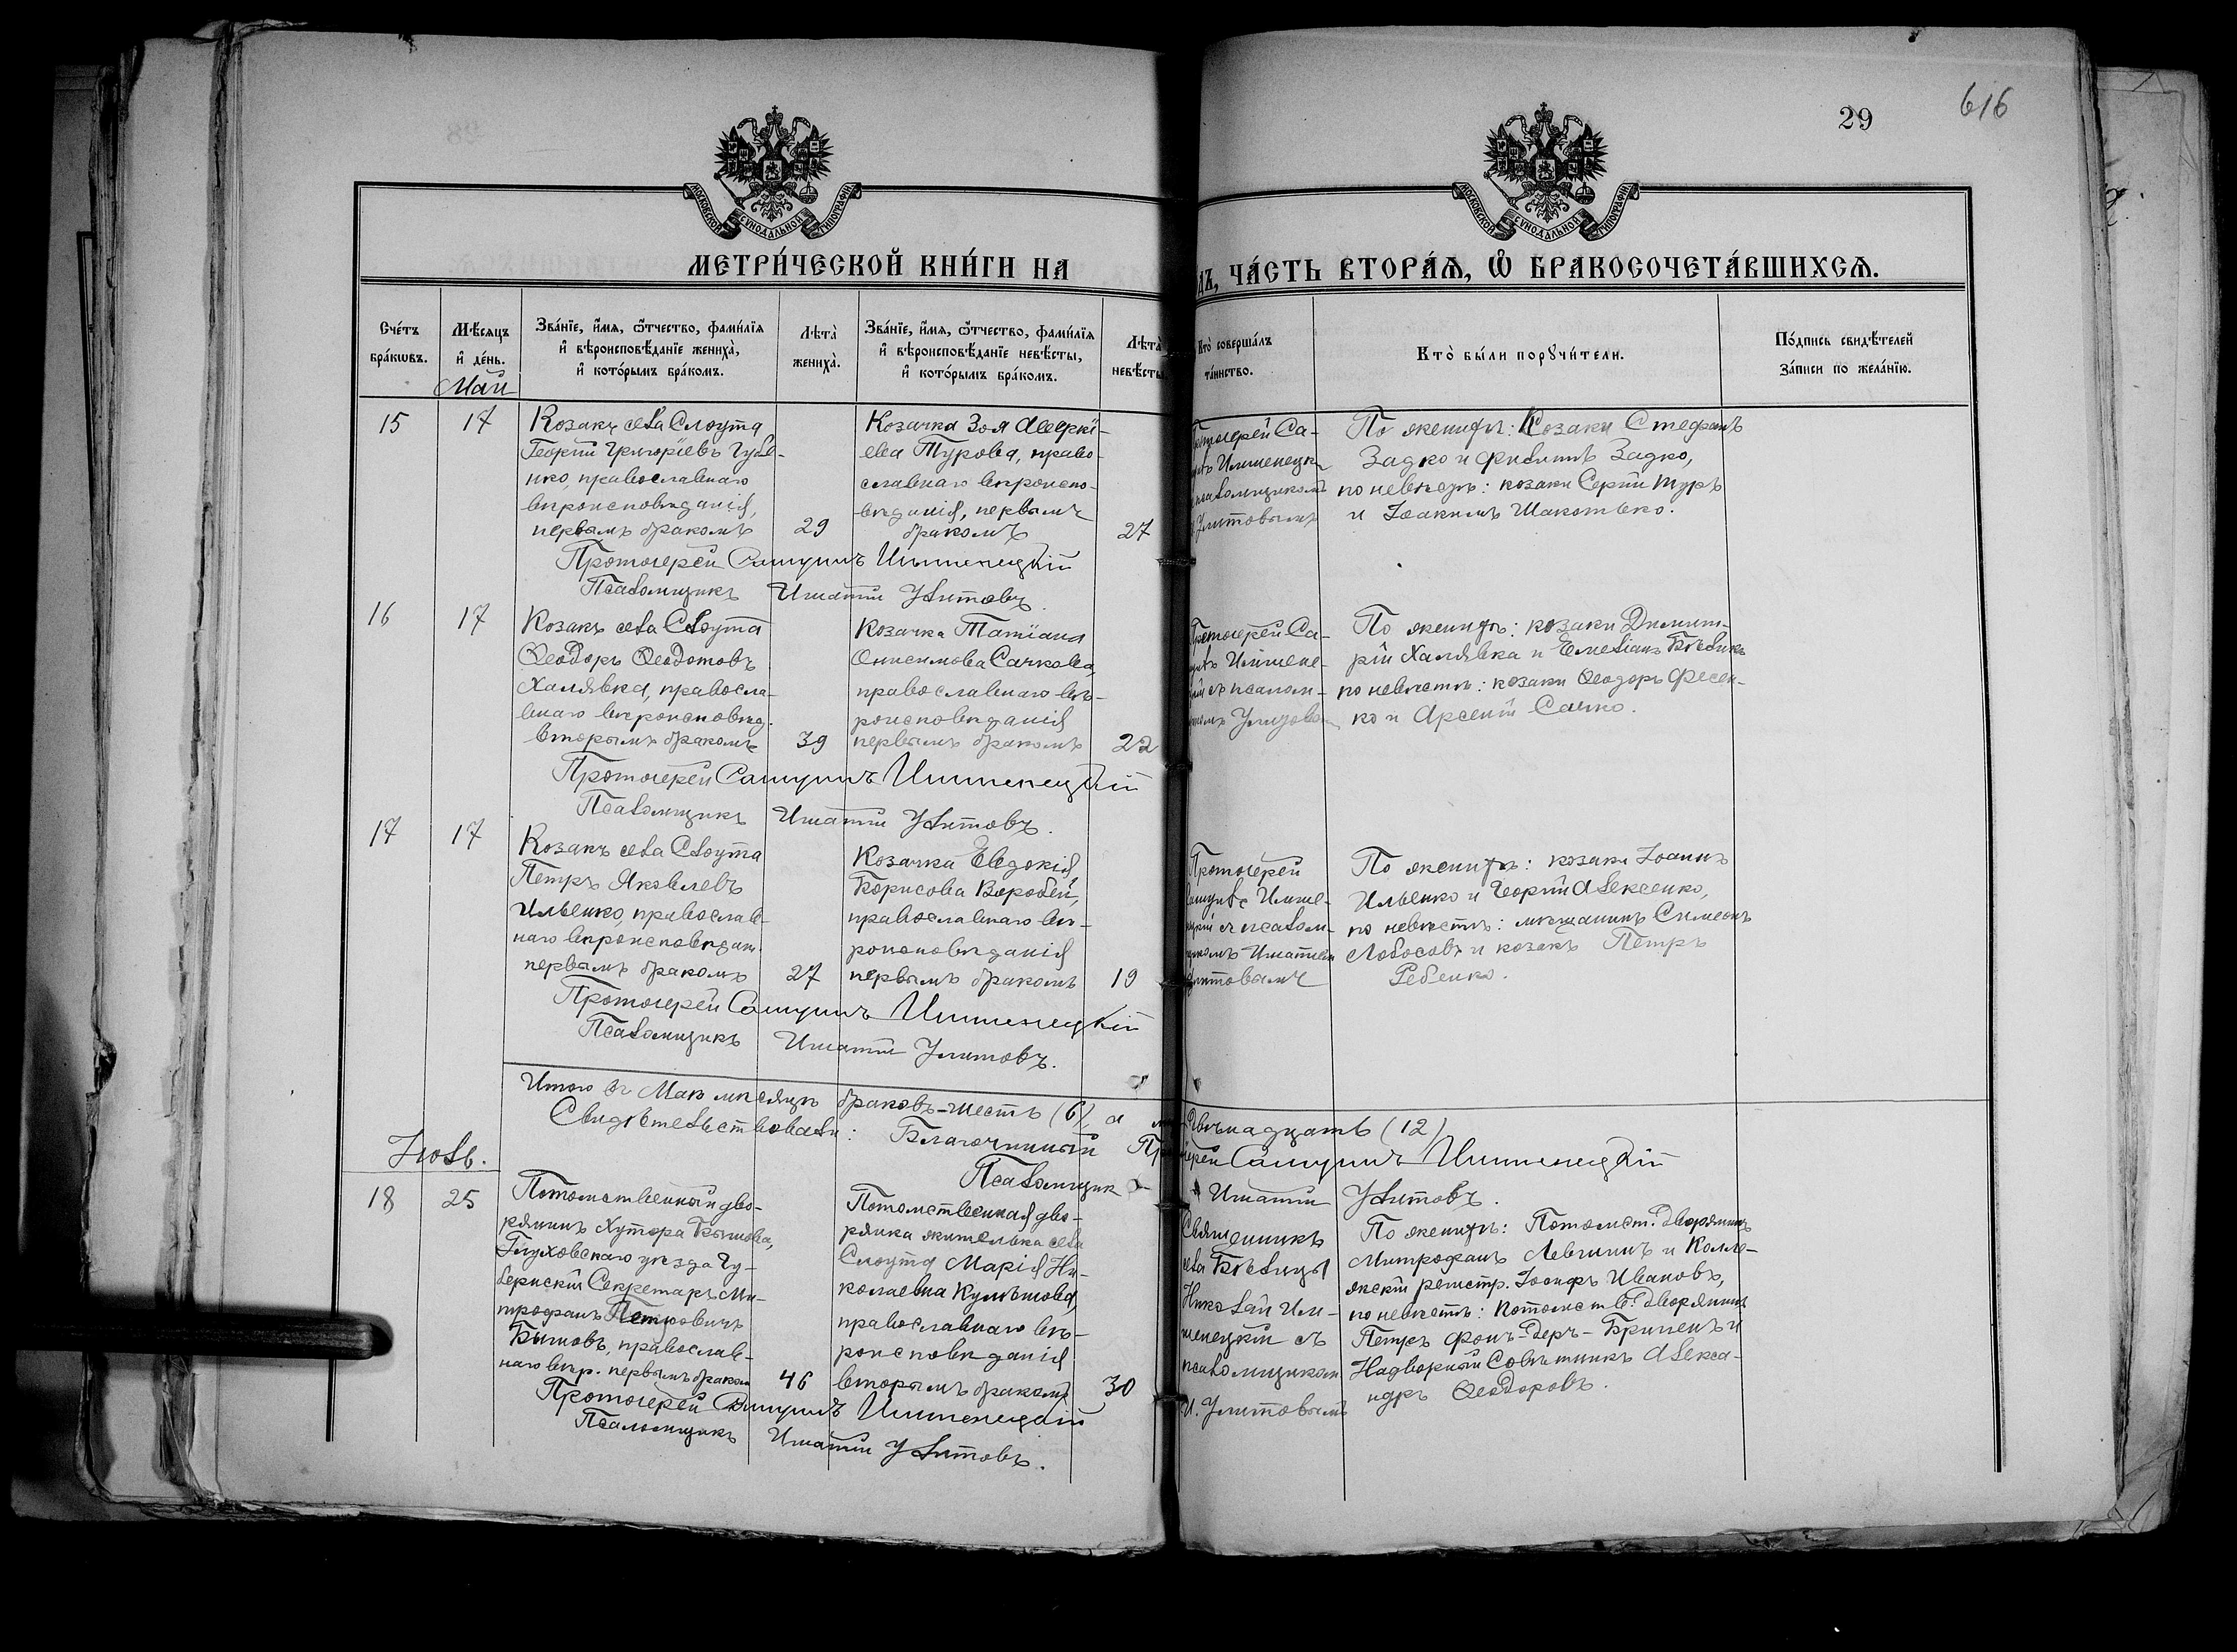 29
616
МОСКОВСКОЙ СѴНОДАЛЬНОЙ ТИПОГРАФІИ
МОСКОВСКОЙ СѴНОДАЛЬНОЙ ТИПОГРАФІИ
МЕТРИ́ЧЕСКОЙ КНИ́ГИ НА
ДЪ, ЧА́СТЬ ВТОРА́Ѧ, Ѽ БРАКОСОЧЕТА́ВШИХСѦ.
Сче́тъ
бра́кѡвъ.
Мѣ́сѧцъ
и҆ де́нь.
Зва́нїе, и҆́мѧ, ѻ҆́тчество, фами́лїѧ
и҆ вѣроисповѣ́данїе жениха̀,
и҆ кото́рымъ бра́комъ.
Лѣ́та̀
жениха̀.
Зва́нїе, и҆́мѧ, ѻ҆́тчество, фами́лїѧ
и҆ вѣроисповѣ́данїе невѣ́сты,
и҆ кото́рымъ бра́комъ.
Лѣ́та̀
невѣ́сты
Кто̀ соверша́лъ
та́инство.
Кто̀ бы́ли порꙋчи́тели.
По́дпись свидѣ́телей
за́писи по жела́нїю.
Май
15
17
Козакъ села Слоута
Георгій Григоріевъ Губе-
нко, православнаго
вѣроисповѣданія,
первымъ бракомъ
29
Козачка Зоя Аверкі-
ева Турова, право-
славнаго вѣроиспо-
вѣданія, первымъ
бракомъ
27
Протоіерей Са-
Имшенецкі
псаломщикомъ
Улитовымъ
По женихѣ: Козаки Стефанъ
Задко и Филиппъ Задко,
по невѣстѣ: козаки Сергій Туръ
и Іоакимъ Шакотько.
Протоіерей Самуилъ Имшенецкій
Псаломщикъ Игнатій Улитовъ.
16
17
Козакъ села Слоута
Ѳеодоръ Ѳеодотовъ
Халявка, правосла-
внаго вѣроисповѣд.
вторымъ бракомъ
39
Козачка Татіана
Онисимова Сачкова,
православнаго вѣ-
роисповѣданія
первымъ бракомъ
22
Протоіерей Са-
Имшене-
псалом-
По женихѣ: козаки Димит-
рій Халявка и Емеліанъ Бѣликъ
по невѣстѣ: козаки Ѳеодоръ Фесен-
ко и Арсеній Сачко.
Протоіерей Самуилъ Имшенецкій
Псаломщикъ Игнатій Улитовъ.
17
17
Козакъ села Слоута
Петръ Яковлевъ
Ильенко, православ-
наго вѣроисповѣдан.
первымъ бракомъ
27
Козачка Евдокія
Борисова Воробей,
православнаго вѣ-
роисповѣданія
первымъ бракомъ
19
Протоіерей
Самуилъ Имше-
нецкій съ псалом-
щикомъ Игнатіем
Улитовымъ
По женихѣ: козаки Іоаннъ
Ильенко и Георгій Алексенко,
по невѣстѣ: мѣщанинъ Симеонъ
Лобосовъ и козакъ Петръ
Ребенко.
Протоіерей Самуилъ Имшенецкій
Псаломщикъ Игнатій Улитовъ.
Итого въ Маѣ мѣсяцѣ браковъ-шесть (6), а двѣнадцать (12)
Свидѣтельствовали: Благочинный Протоіерей Самуилъ Имшенецкій
Псаломщикъ Игнатій Улитовъ.
Іюль.
18
25
Потомственный дво-
рянинъ Хутора Кышова,
Глуховскаго уѣзда Гу-
бернскій Секретарь Ми-
трофанъ Петровичъ
Бытовъ, православ-
наго вѣр. первымъ браком
46
Потомственная дво-
рянка жителька села
Слоута Марія Ни-
колаевна Кулѣшова,
православнаго вѣ-
роисповѣданія
вторымъ бракомъ
30
Священникъ
села Бѣлицы
Николай Им-
шенецкій съ
псаломщиком
И. Улитовымъ
По женихѣ: Потомст. дворянинъ
Митрофанъ Левшинъ и Колле-
жскій регистр. Іосифъ Ивановъ,
по невѣстѣ: потомств. дворянинъ
Петръ фонъ-деръ-Бриггенъ и
Надворный Совѣтникъ Алекса-
ндръ Ѳеодоровъ.
Протоіерей Самуилъ Имшенецкій
Псаломщикъ Игнатій Улитовъ.